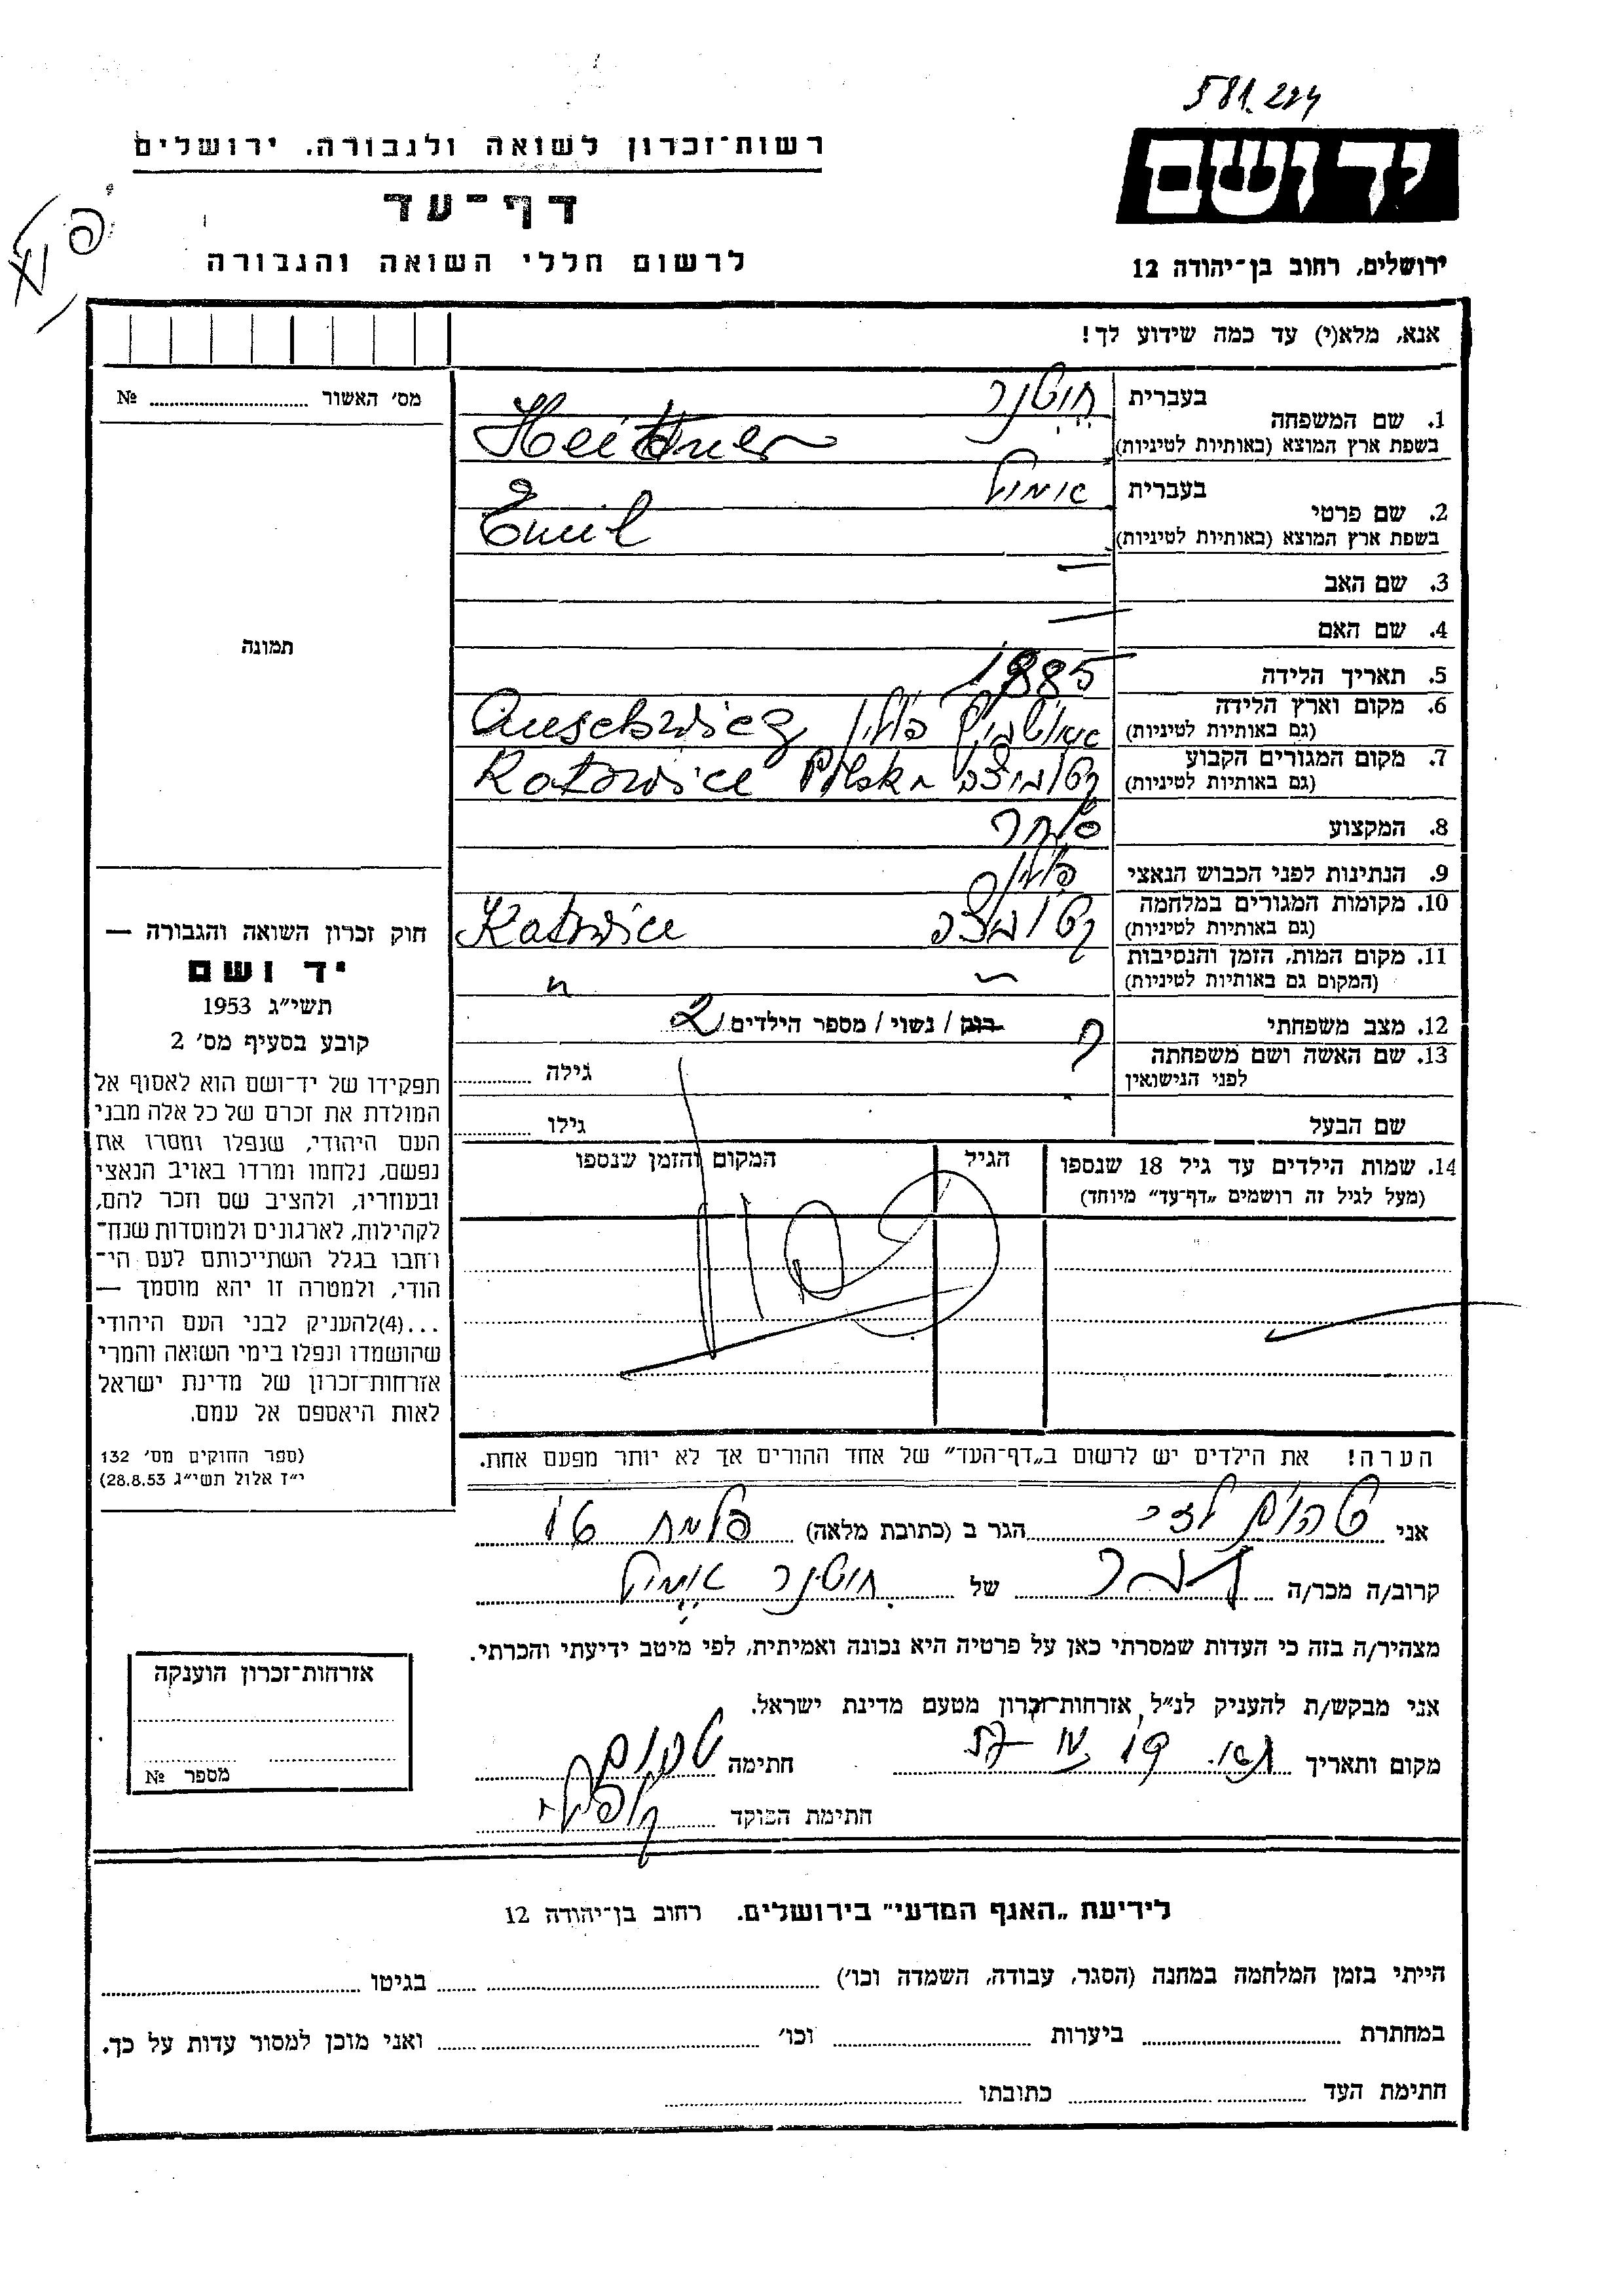 581.224
רשות־זכרון לשואה ולגבורה. ירושלים
יד ושם
דף־עד
לרשום חללי השואה והגבורה
ירושלים, רחוב בן־יהודה 12
אנא, מלא(י) עד כמה שידוע לך!
מס׳ האשור № 
1. שם המשפחה
בעברית
בשפת ארץ המוצא (באותיות לטיניות)
2. שם פרטי
בעברית
אמיל
בשפת ארץ המוצא (באותיות לטיניות) Emil
3. שם האב —
4. שם האם —
תמונה
5. תאריך הלידה 1885
6. מקום וארץ הלידה
(גם באותיות לטיניות) פולין
7. מקום המגורים הקבוע
(גם באותיות לטיניות) Katowice
8. המקצוע סוחר
9. הנתינות לפני הכבוש הנאצי פולין
10. מקומות המגורים במלחמה
(גם באותיות לטיניות) Katowice
11. מקום המות, הזמן והנסיבות
(המקום גם באותיות לטיניות)
12. מצב משפחתי רווק / נשוי / מספר הילדים 2
13. שם האשה ושם משפחתה
לפני הנישואין ? גילה
שם הבעל גילו
14. שמות הילדים עד גיל 18 שנספו
(מעל לגיל זה רושמים „דף־עד” מיוחד)
הגיל
המקום והזמן שנספו
חוק זכרון השואה והגבורה —
יד ושם
תשי״ג 1953
קובע בסעיף מס׳ 2
תפקידו של יד־ושם הוא לאסוף אל
המולדת את זכרם של כל אלה מבני
העם היהודי, שנפלו ומסרו את
נפשם, נלחמו ומרדו באויב הנאצי
ובעוזריו, ולהציב שם וזכר להם,
לקהילות, לארגונים ולמוסדות שנח־
רבו בגלל השתייכותם לעם הי־
הודי, ולמטרה זו יהא מוסמך —
...(4)להעניק לבני העם היהודי
שהושמדו ונפלו בימי השואה והמרי
אזרחות־זכרון של מדינת ישראל
לאות היאספם אל עמם.
(ספר החוקים מס׳ 132
י״ז אלול תשי״ג 28.8.53)
הערה! את הילדים יש לרשום ב„דף־העד” של אחד ההורים אך לא יותר מפעם אחת.
אני הגר ב (כתובת מלאה)
קרוב/ה מכר/ה של אמיל
מצהיר/ה בזה כי העדות שמסרתי כאן על פרטיה היא נכונה ואמיתית, לפי מיטב ידיעתי והכרתי.
אני מבקש/ת להעניק לנ״ל, אזרחות־זכרון מטעם מדינת ישראל.
מקום ותאריך חתימה
חתימת הפוקד
אזרחות־זכרון הוענקה
מספר №
לידיעת „האגף המדעי” בירושלים. רחוב בן־יהודה 12
הייתי בזמן המלחמה במחנה (הסגר, עבודה, השמדה וכו׳) בגיטו
במחתרת ביערות וכו׳ ואני מוכן למסור עדות על כך.
חתימת העד כתובתו